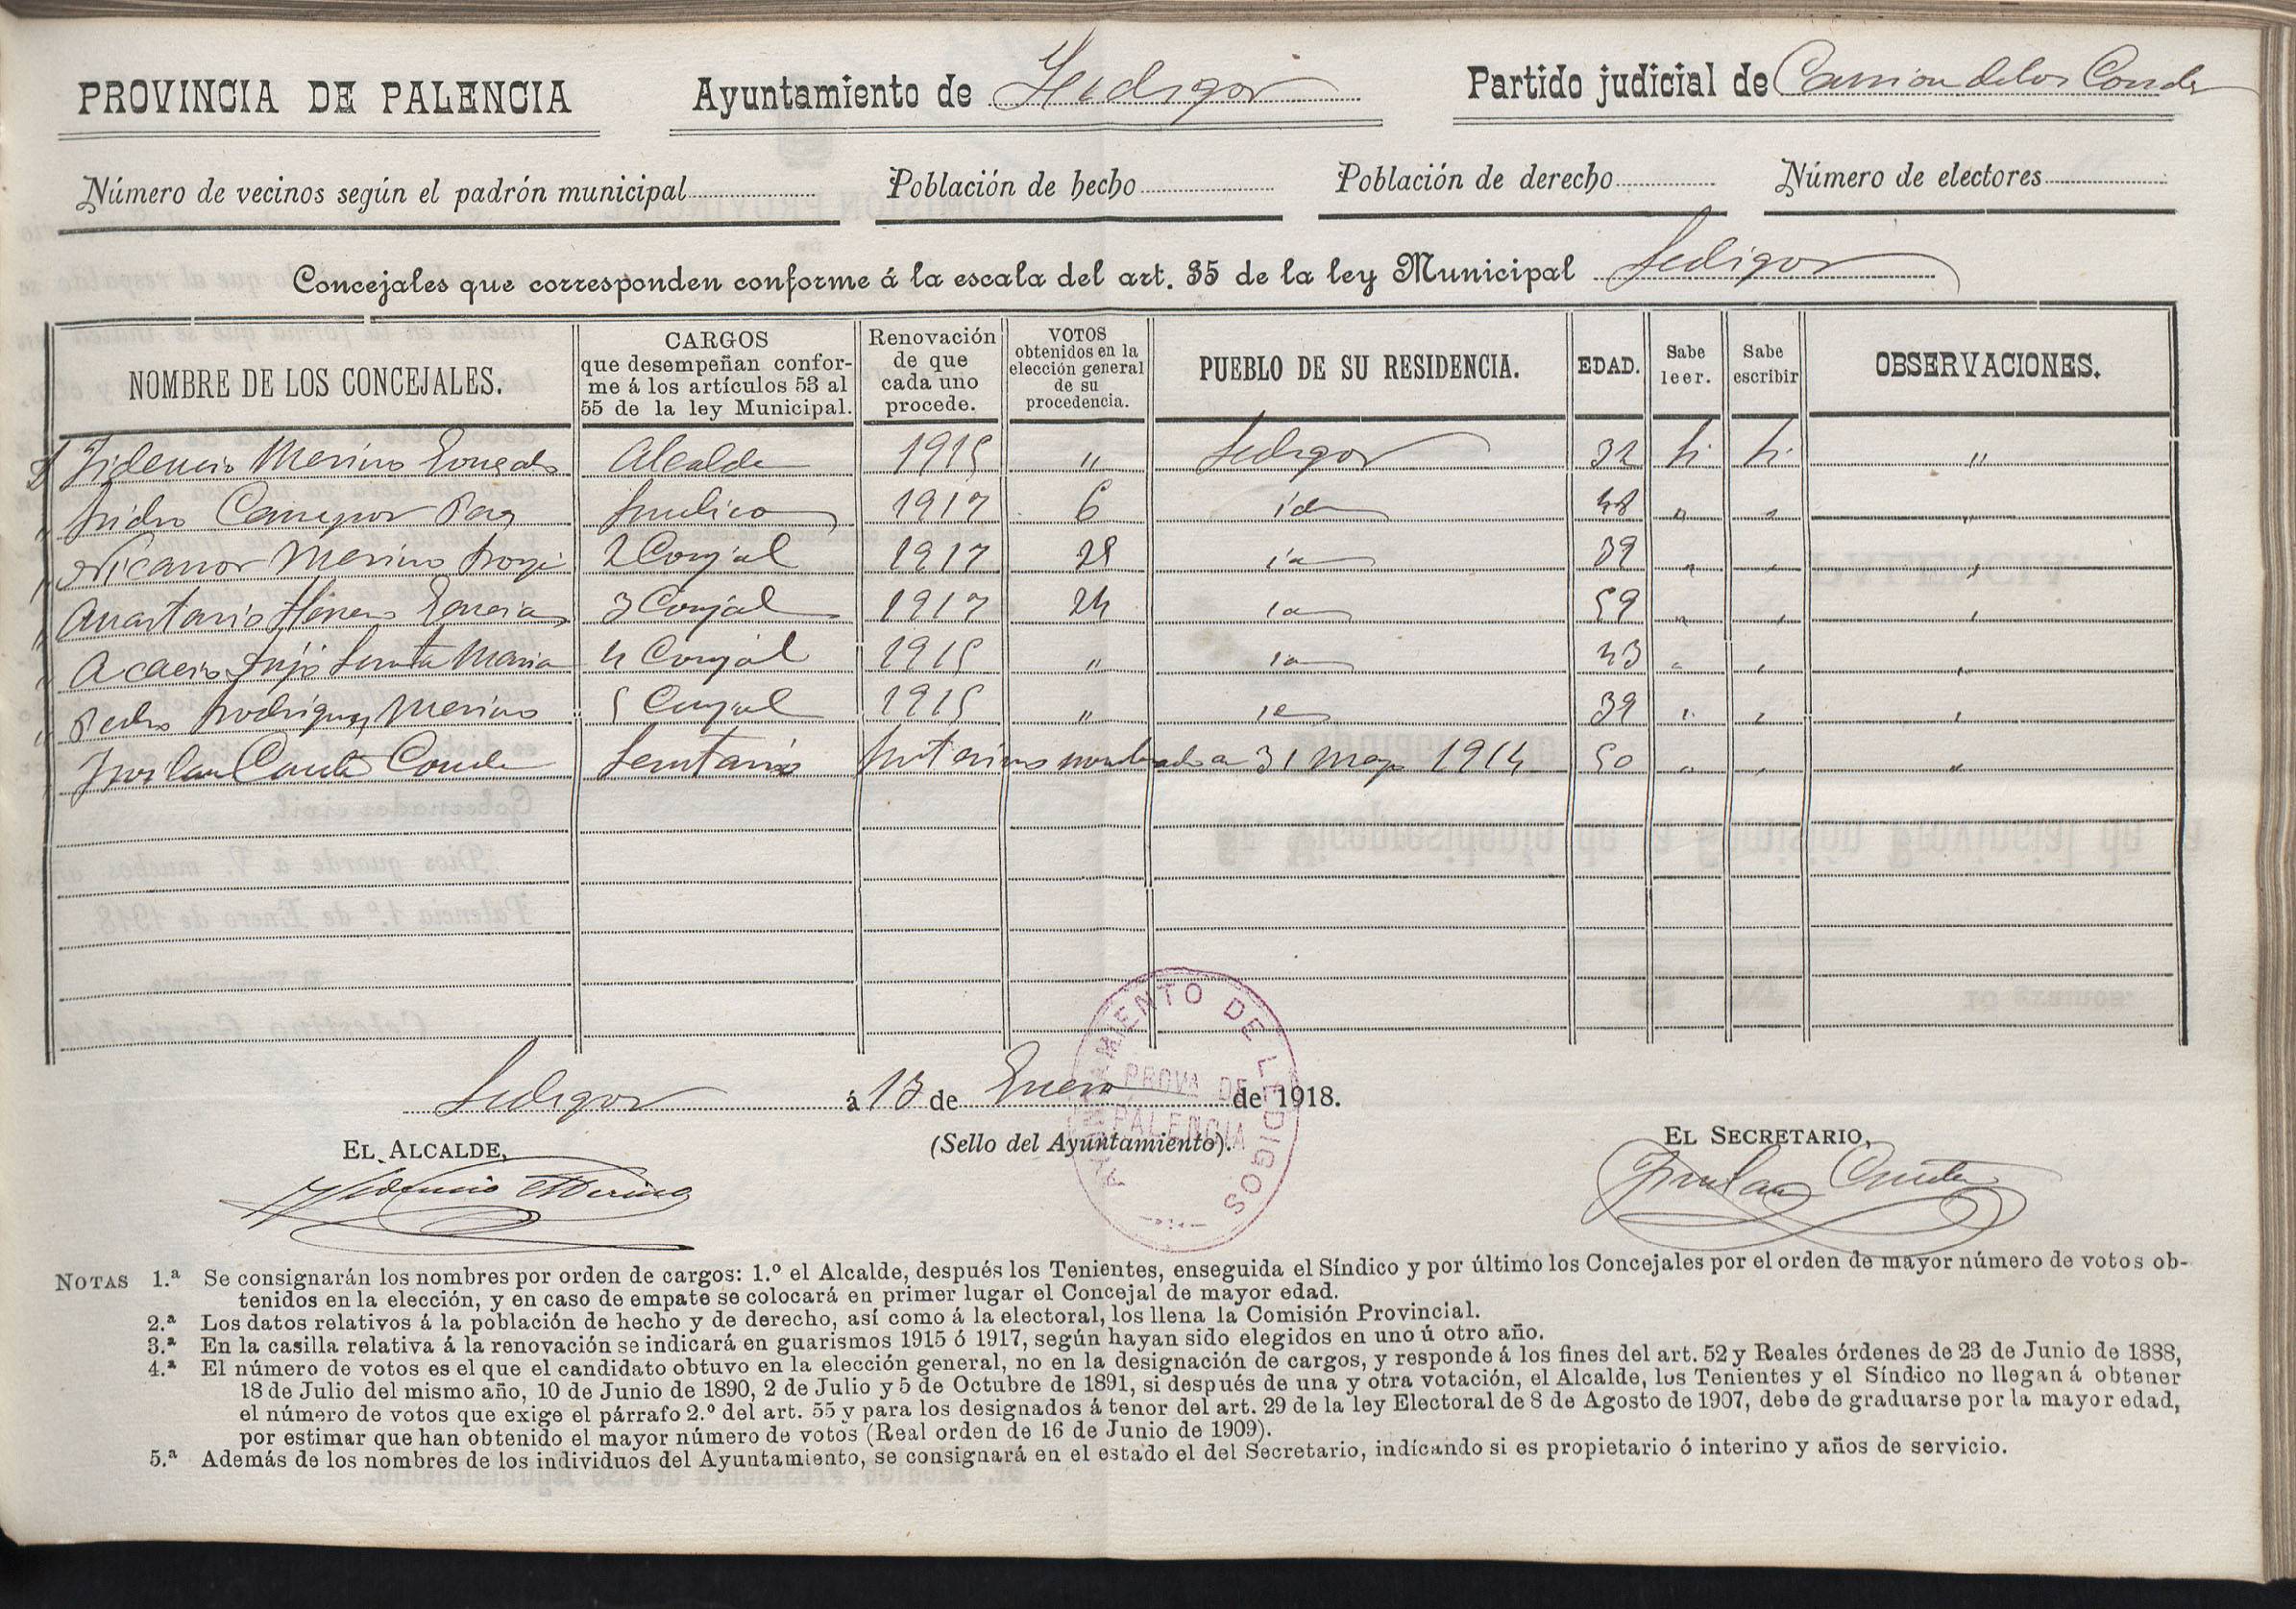 PROVINCIA DE PALENCIA Ayuntamiento de Ledigos Partido judicial de Carrion de los Condes
Número de vecinos según el padrón municipal Población de hecho Población de derecho Número de electores
Concejales que corresponden conforme á la escala del art. 35 de la ley Municipal Ledigos
NOMBRE DE LOS CONCEJALES. CARGOS que desempeñan conforme á los artículos 53 al 55 de la ley Municipal. Renovación de que cada uno procede. VOTOS obtenidos en la elección general de su procedencia. PUEBLO DE SU RESIDENCIA. EDAD. Sabe leer. Sabe escribir OBSERVACIONES.
D Fidencio Merino Gonzalo Alcalde 1915 " Ledigos 32 Si Si "
" Isidro Campos Sindico 1917 6 id 48 " " "
" Nicanor Merino 2 Conjal 1917 28 id 39 " " "
" Anastasio Herrero 3 Conjal 1917 24 id 59 " " "
" Acacio Santa Maria 4 Conjal 1915 " id 43 " " "
" Pedro Rodriguez Merino 5 Conjal 1915 " id 39 " " "
" Froilan Conde Secretario Interino nombrado a 31 Mayo 1914 50 " " "
Ledigos á 13 de Enero de 1918.
EL ALCALDE, (Sello del Ayuntamiento). EL SECRETARIO,
AYUNTAMIENTO DE LEDIGOS
PROVA DE
PALENCIA
Fidencio Merino Froilan Conde
NOTAS 1.ª Se consignarán los nombres por orden de cargos: 1.º el Alcalde, después los Tenientes, enseguida el Síndico y por último los Concejales por el orden de mayor número de votos ob-
tenidos en la elección, y en caso de empate se colocará en primer lugar el Concejal de mayor edad.
2.ª Los datos relativos á la población de hecho y de derecho, así como á la electoral, los llena la Comisión Provincial.
3.ª En la casilla relativa á la renovación se indicará en guarismos 1915 ó 1917, según hayan sido elegidos en uno ú otro año.
4.ª El número de votos es el que el candidato obtuvo en la elección general, no en la designación de cargos, y responde á los fines del art. 52 y Reales órdenes de 23 de Junio de 1888,
18 de Julio del mismo año, 10 de Junio de 1890, 2 de Julio y 5 de Octubre de 1891, si después de una y otra votación, el Alcalde, los Tenientes y el Síndico no llegan á obtener
el número de votos que exige el párrafo 2.º del art. 55 y para los designados á tenor del art. 29 de la ley Electoral de 8 de Agosto de 1907, debe de graduarse por la mayor edad,
por estimar que han obtenido el mayor número de votos (Real orden de 16 de Junio de 1909).
5.ª Además de los nombres de los individuos del Ayuntamiento, se consignará en el estado el del Secretario, indicando si es propietario ó interino y años de servicio.